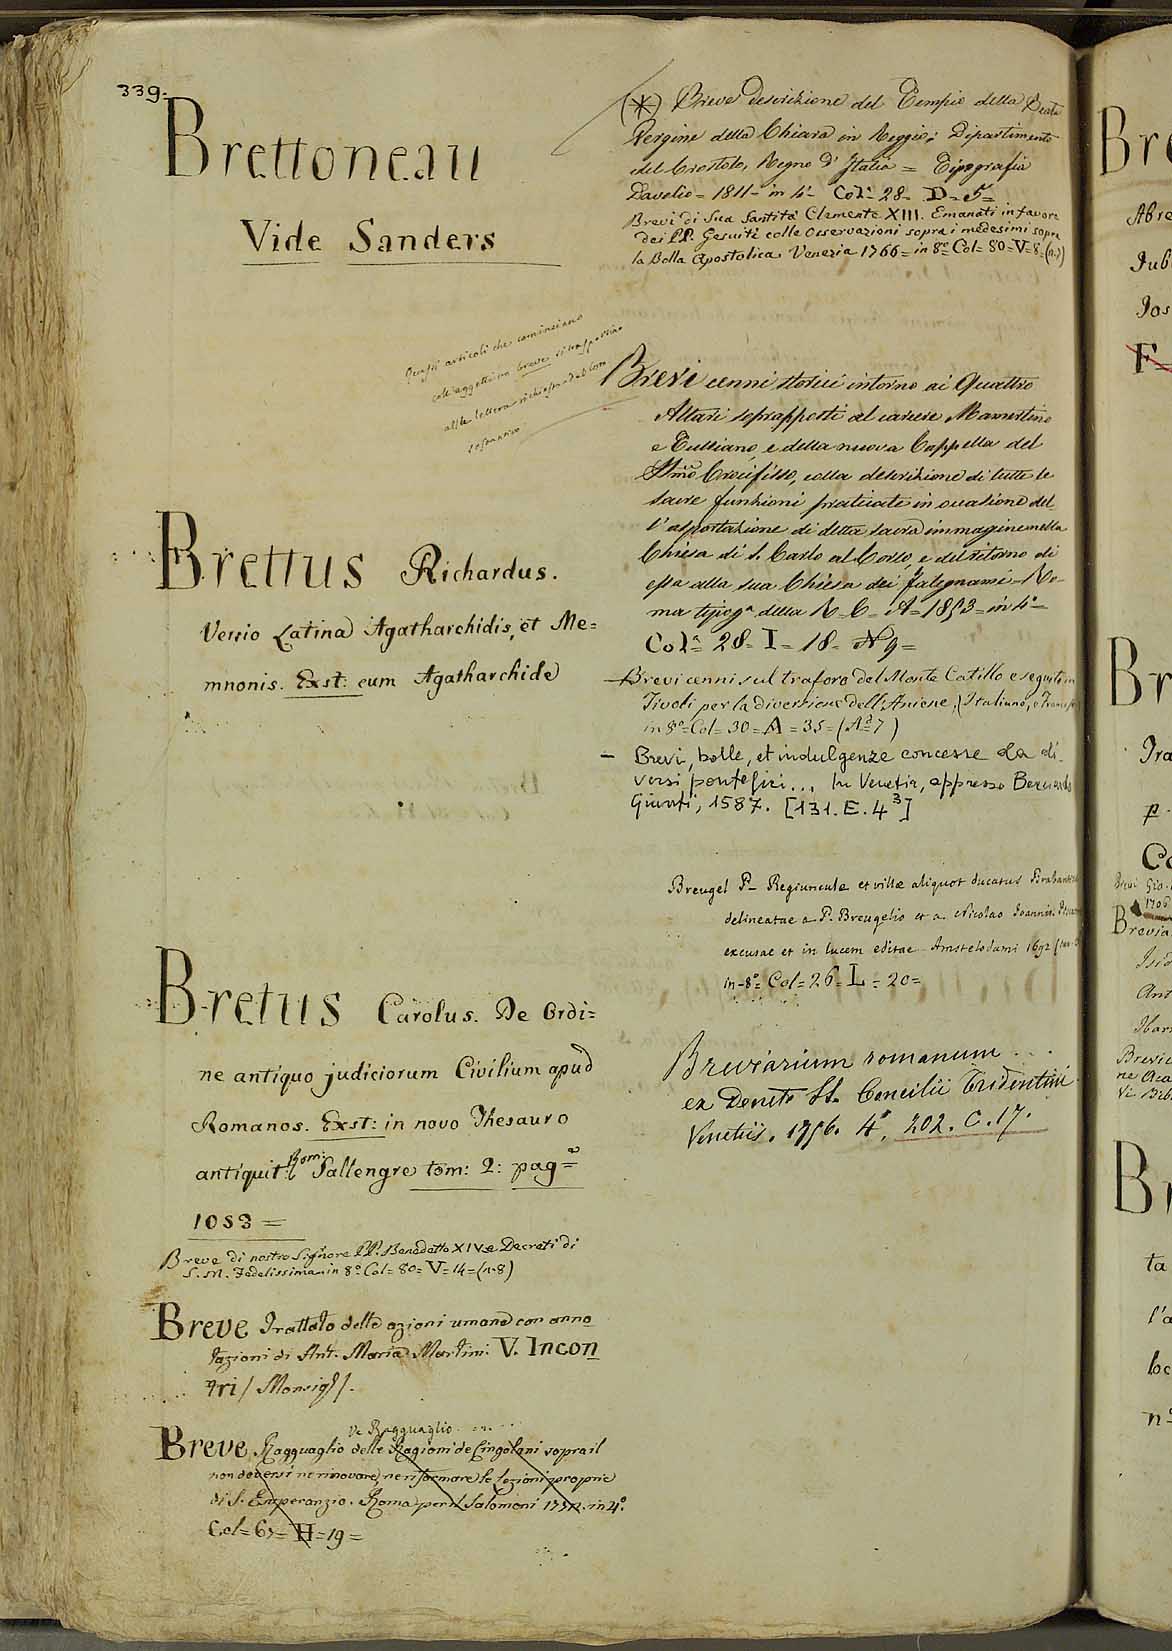 339.
Brettoneau
Vide Sanders
Questi articoli che cominciano
coll'aggettivo breve si trasportino
alla lettera richiesta dal loro
sostantivo
Brettus Richardus.
Versio Latina Agatharchidis, et Me=
mnonis. Exst: cum Agatharchide
Bretus Carolus. De Ordi=
ne antiquo judiciorum Civilium apud
Romanos. Exst: in novo Thesauro
antiquit: Rom: Sallengre tom: 2: pag=
1053=
Breve di nostro Signore PP. Benedetto XIV e Decreti di
S. M. Fedelissima in 8º Col= 80= V= 14= (n. 8)
Breve Trattato delle azioni umane con anno
tazioni di Ant. Maria Martini. V. Incon
tri / Monsig /.
Ve Ragguaglio
Breve Ragguaglio delle Ragioni de Cingolani sopra il
non doversi ne rinovare, ne riformare le lezioni proprie
di S. Esuperanzio. Roma per il Salomoni in 4º.
Col= 67= H= 19=
(*) Breve descrizione del Tempio della Beata
Vergine della Chiara in Reggio; Dipartimento
del Crostolo, Regno d'Italia = Tipografia
Davolio= 1811= in 4º- Col= 28= D= 5=
Brevi di Sua Santità Clemente XIII. Emanati in favore
dei PP. Gesuiti colle Osservazioni sopra i medesimi sopra
la Bolla Apostolica Venezia 1766= in 8º= Col= 80= V= 8= (n. 7)
Brevi cenni storici intorno ai Quattro
Altari soprapposti al carcere Mamertino
e Tulliano e della nuova Cappella del
SSmo Crocifisso, colla descrizione di tutte le
sacre funzioni praticate in occasione del
l'asportazione di detta sacra immagine nella
Chiesa di S. Carlo al Corso, e del ritorno di
essa alla sua Chiesa dei falegnami= Ro-
ma tipogª della R. C. A= 1853= in 4º=
Col= 28= I= 18= N 9=
- Brevi cenni sul traforo del Monte Catillo eseguito in
Tivoli per la diversione dell'Aniene, (Italiano, e
in 8º= Col= 30= A= 35= (Aª 7)
- Brevi, bolle, et indulgenze concesse da di-
versi pontefici... In Venetia, appresso Bernardo
Giunti, 1587. [131. E. 4³]
Breugel P- Regiunculae et villae aliquot ducatus
delineatae a P. Breugelio et a Nicolao Joannis
excusae et in lucem editae Amstelodami
in-8º= Col= 26= L= 20=
Breviarium romanum ...
ex Decreto SS. Concilii Tridentini
Venetiis. 1756. 4º. 202. C. 17.